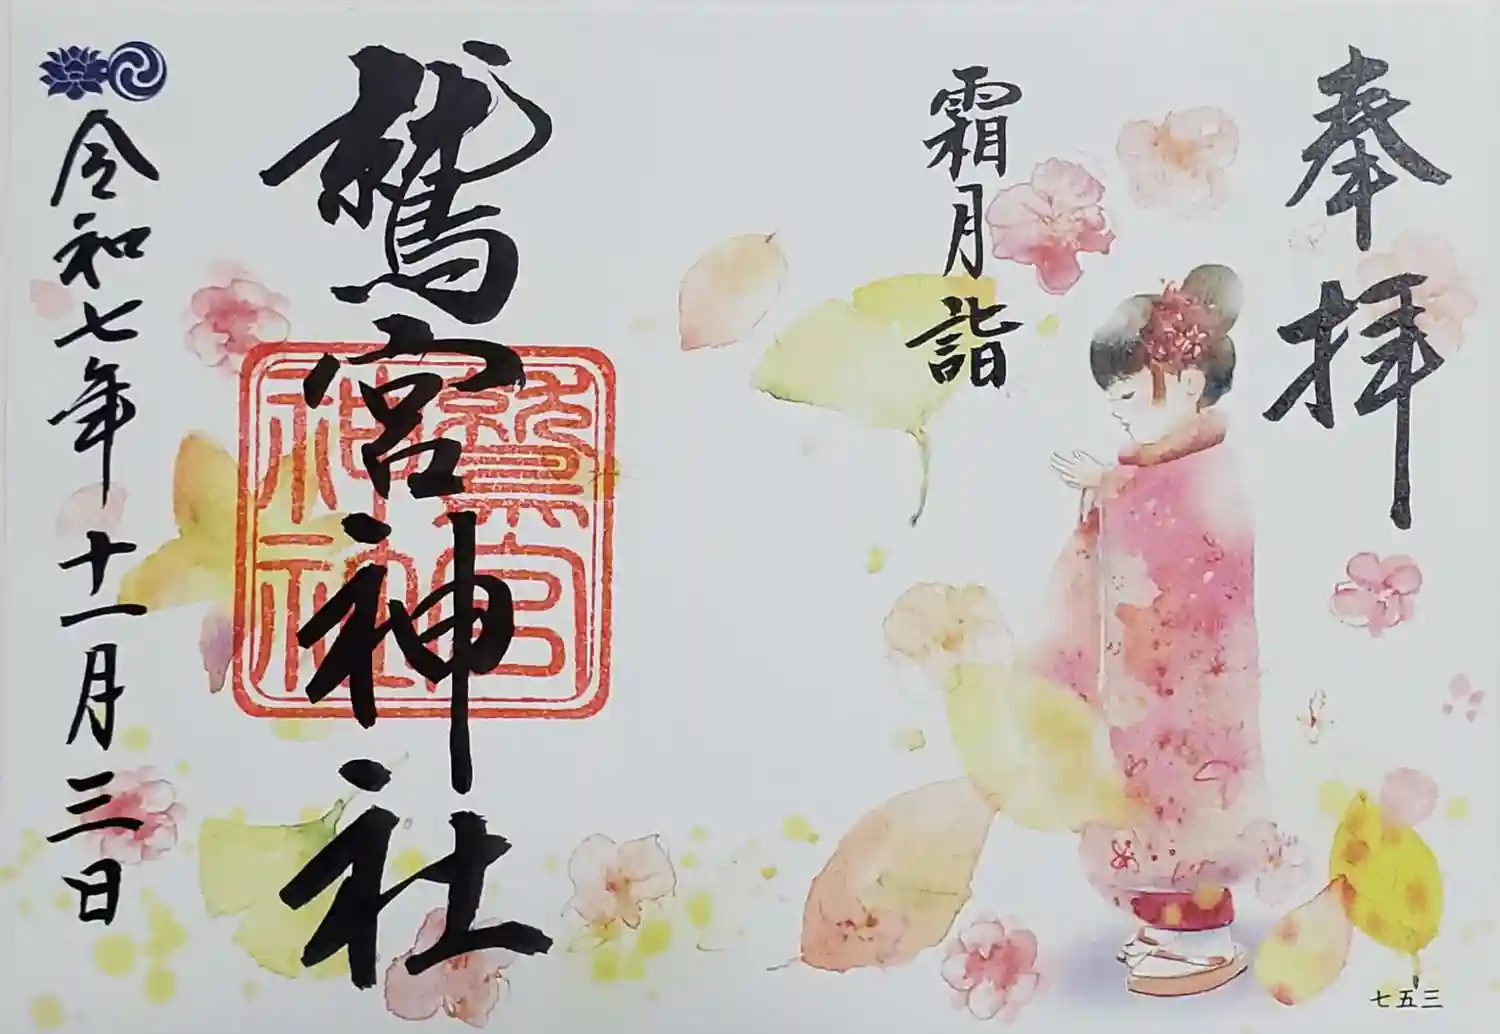 奉拝
霜月詣
鷲宮神社
鷲宮
神社
令和七年十一月三日
七五三